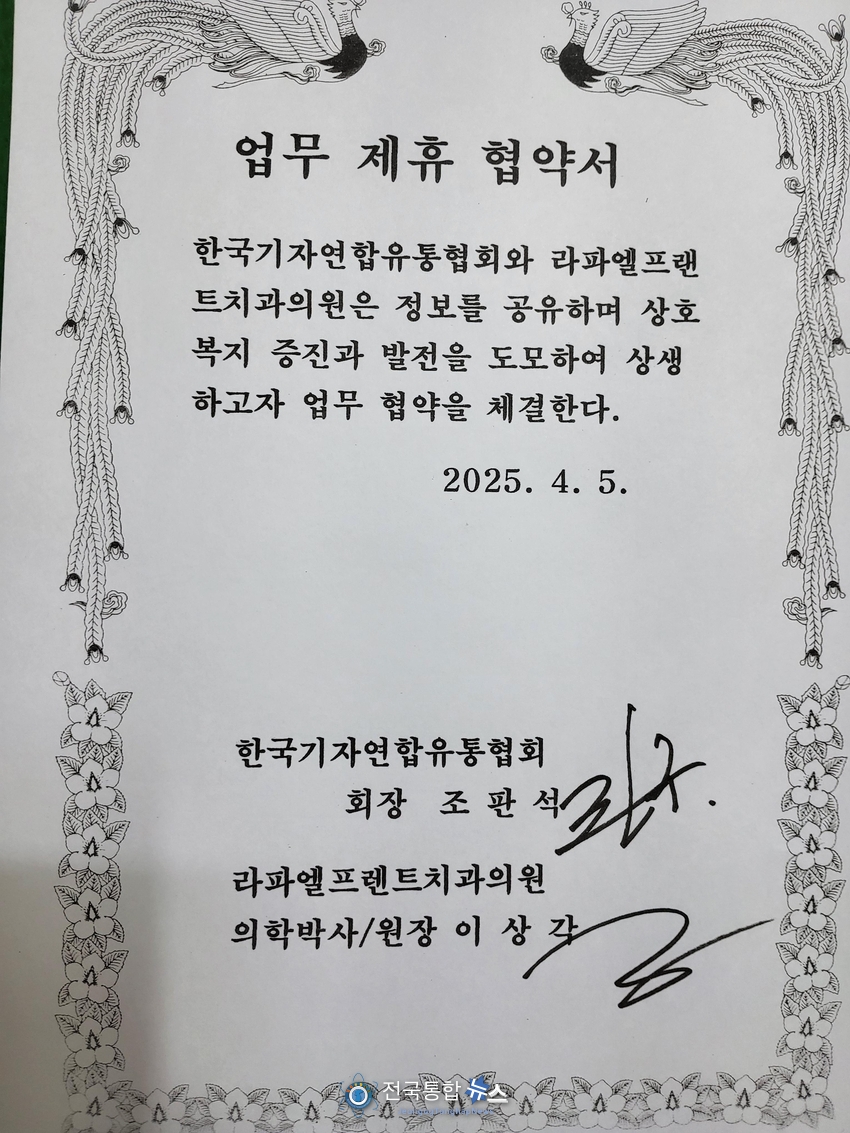 업무 제휴 협약서
한국기자연합유통협회와 라파엘프랜
트치과의원은 정보를 공유하며 상호
복지 증진과 발전을 도모하여 상생
하고자 업무 협약을 체결한다.
2025. 4. 5.
한국기자연합유통협회
회장 조 판 석
라파엘프렌트치과의원
의학박사/원장 이 상 각
전국통합뉴스